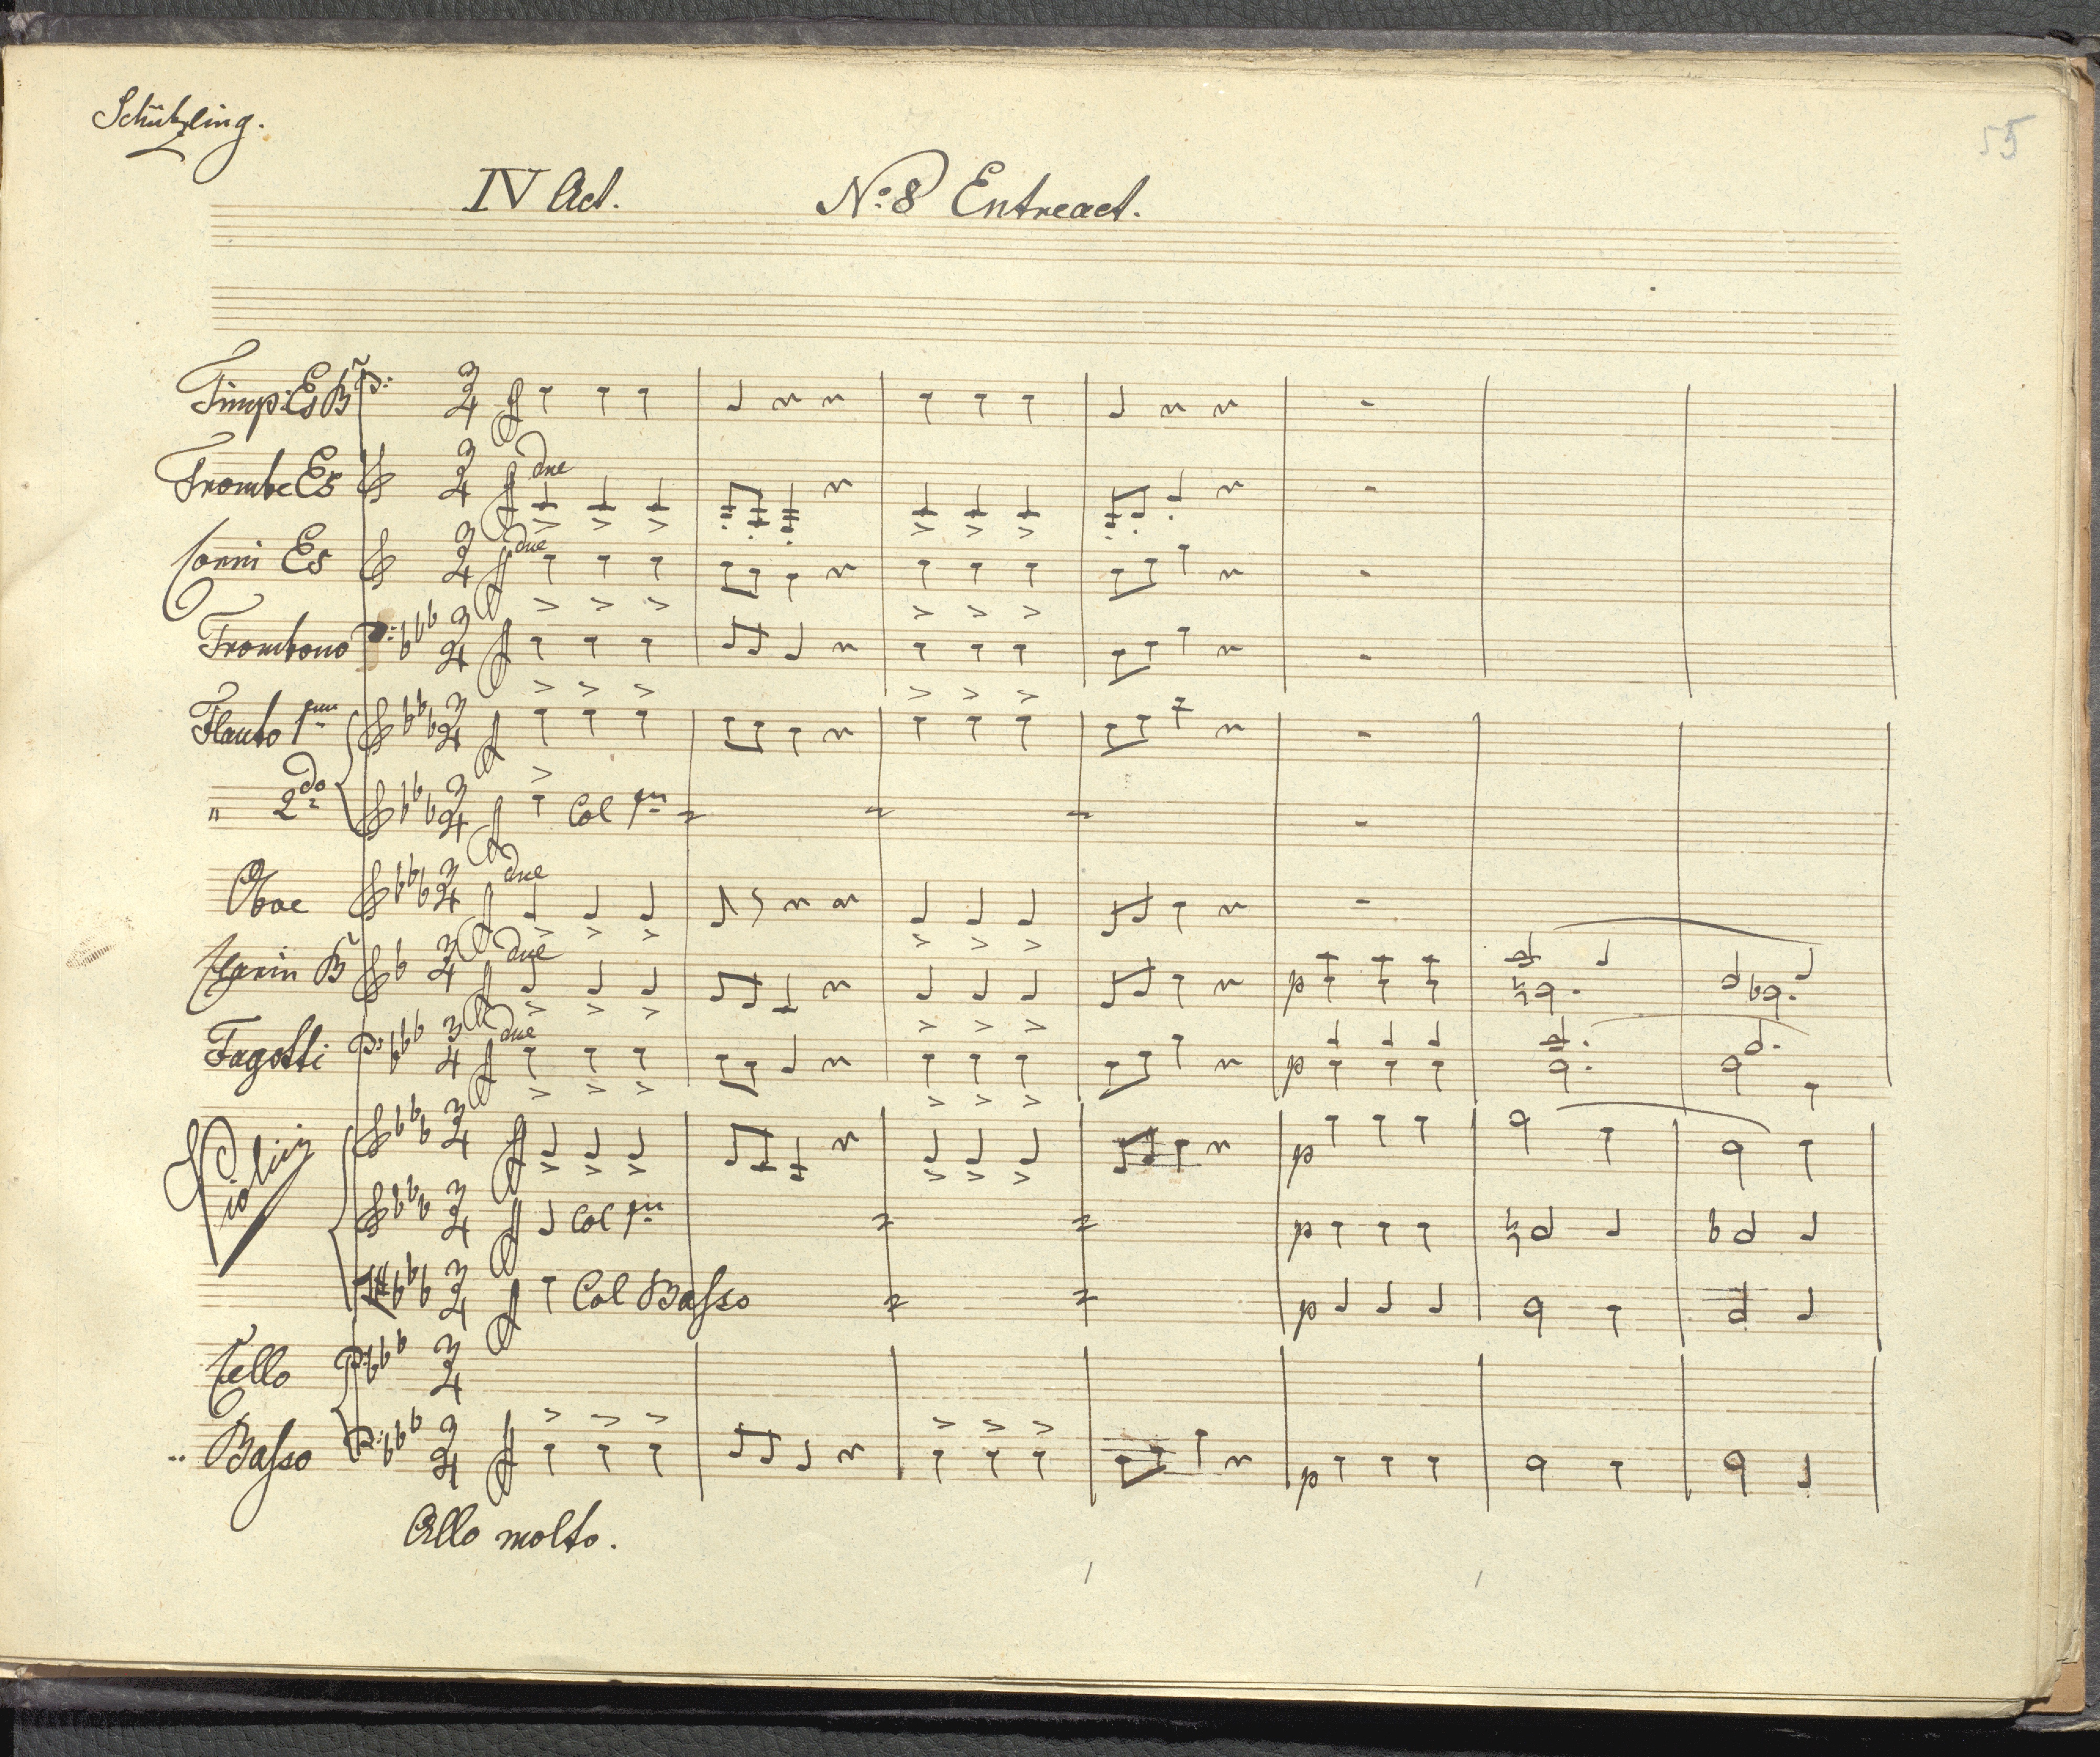 Schützling.
55
IV Act. No: 8 Entreact.
Timp: Es B
Trombe Es due
Corni Es due
Trombono
Flauto 1mo
" 2do Col 1mo
Oboe due
Clarin B due
Fagotti due
p
p
Violini
p
Col 1mo p
Col Basso p
Cello
Basso p
Allo molto.